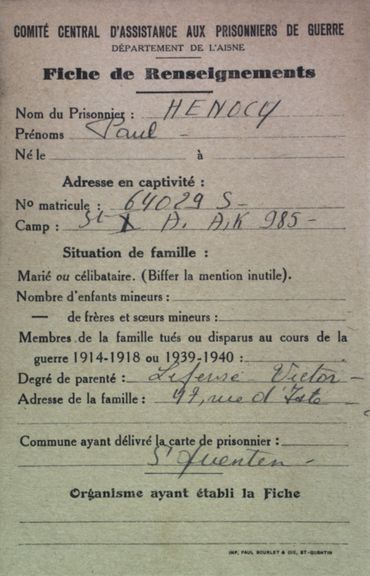 COMITÉ CENTRAL D'ASSISTANCE AUX PRISONNIERS DE GUERRE
DÉPARTEMENT DE L'AISNE
Fiche de Renseignements
Nom du Prisonnier : HENOCY
Prénoms Paul -
Né le à
Adresse en captivité :
No matricule : 64029 S -
Camp : St X A. A.K 985 -
Situation de famille :
Marié ou célibataire. (Biffer la mention inutile).
Nombre d'enfants mineurs :
— de frères et sœurs mineurs :
Membres de la famille tués ou disparus au cours de la
guerre 1914-1918 ou 1939-1940 :
Degré de parenté : Victor -
Adresse de la famille : rue d'
Commune ayant délivré la carte de prisonnier :
St Quentin -
Organisme ayant établi la Fiche
IMP. PAUL BOURLET & CIE, ST-QUENTIN